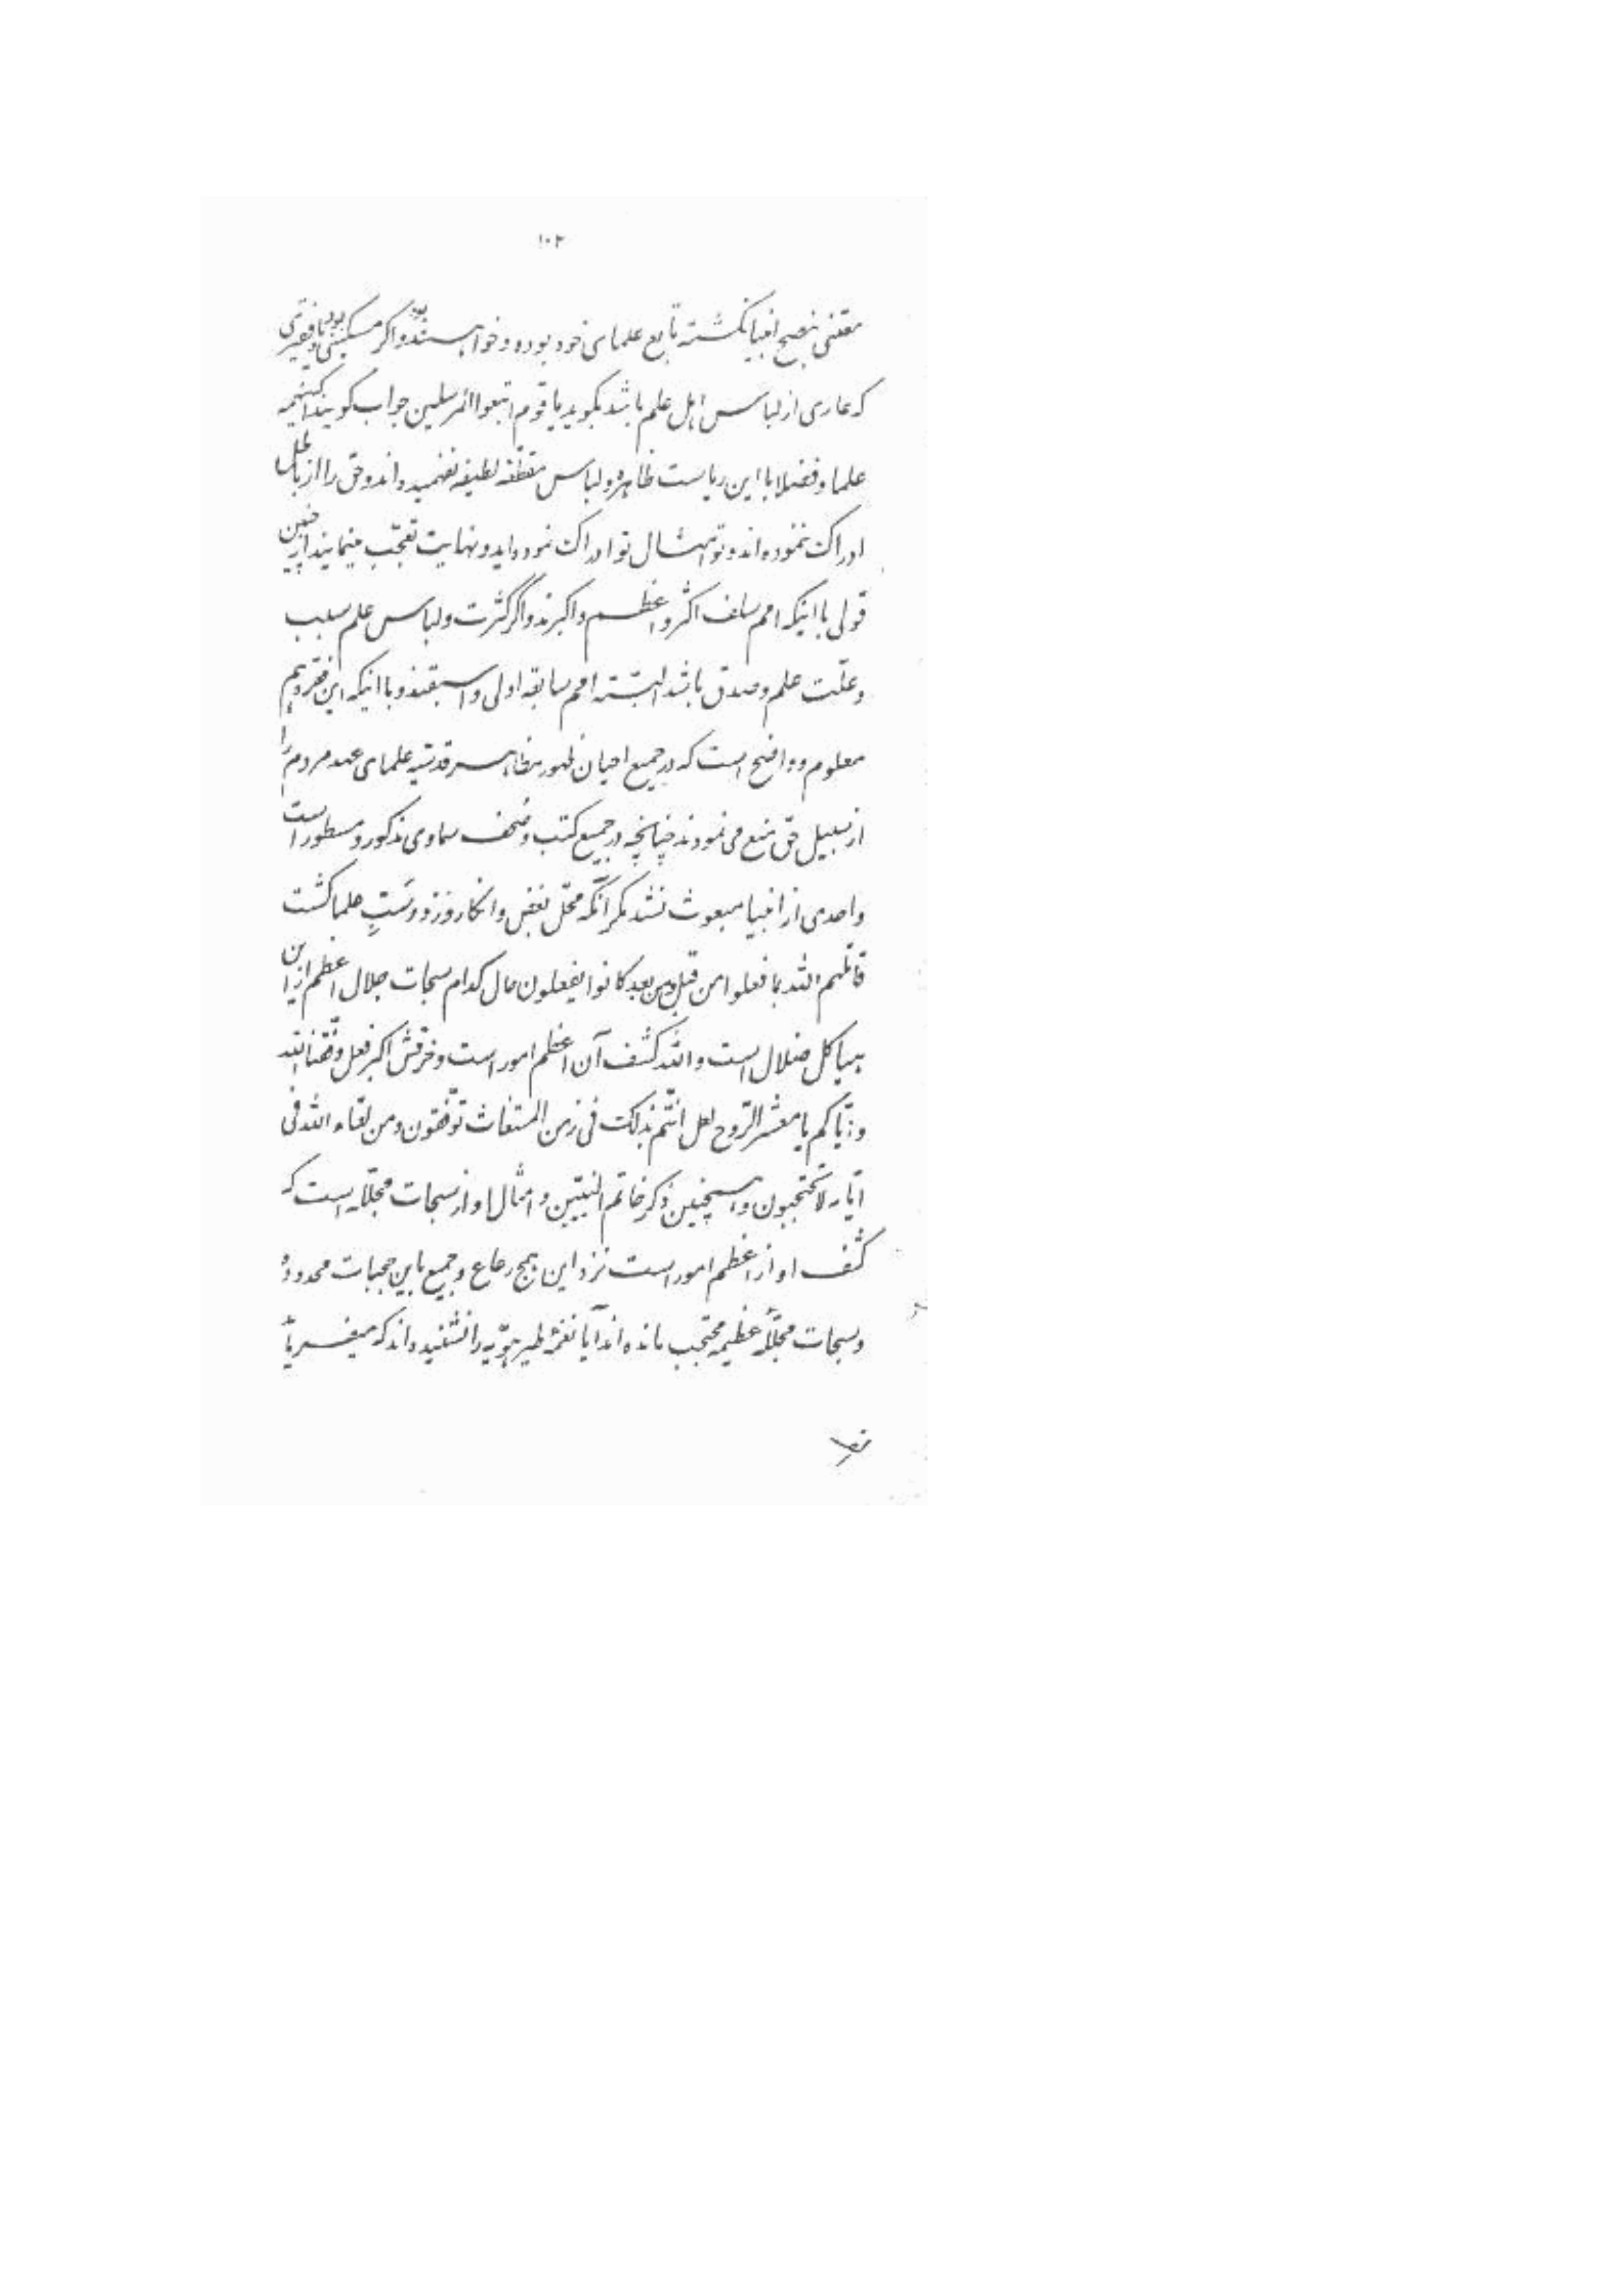 ۱۰۲
مقتفی بنصح انبیا نگشته تابع علمای خود بوده و خواهند بود و اگر مسکینی و یا فقیری
که عاری از لباس اهل علم باشد بگوید یا قوم اتبعوا المرسلین جواب گویند اینهمه
علما و فضلا با این ریاست ظاهره و لباس مقطّعه لطیفه نفهمیده‌اند و حق را از باطل
ادراک ننموده‌اند و تو و امثال تو ادراک نموده‌اید و نهایت تعجّب مینمایند از چنین
قولی با اینکه امم سلف اکثر و اعظم و اکبرند و اگر کثرت و لباس علم سبب
و علّت علم و صدق باشد البتّه امم سابقه اولی و اسبقند و با اینکه این فقره هم
معلوم و واضح است که در جمیع احیان ظهور مظاهر قدسیّه علمای عهد مردم را
از سبیل حق منع می‌نمودند چنانچه در جمیع کتب و صحف سماوی مذکور و مسطور است
واحدی از انبیا مبعوث نشد مگر آنکه محلّ بغض و انکار و ردّ و سَبّ علما گشت
قاتلهم الله بما فعلوا من قبل و من بعد کانوا یفعلون حال کدام سبحات جلال اعظم از این
هیاکل ضلال است والله کشف آن اعظم امور است و خرقش اکبر فعل وفّقنا الله
و ایّاکم یا معشر الرّوح لعل انتم بذلک فی زمن المستغاث توفّقون و من لقاء الله فی
ایّامه لا تحتجبون و همچنین ذکر خاتم النبیّین و امثال او از سبحات مجلّله است که
کشف او از اعظم امور است نزد این همج رعاع و جمیع باین حجبات محدوده
و سبحات مجلّله عظیمه محتجب مانده‌اند آیا نغمه طیر هویّه را نشنیده‌اند که میفرماید